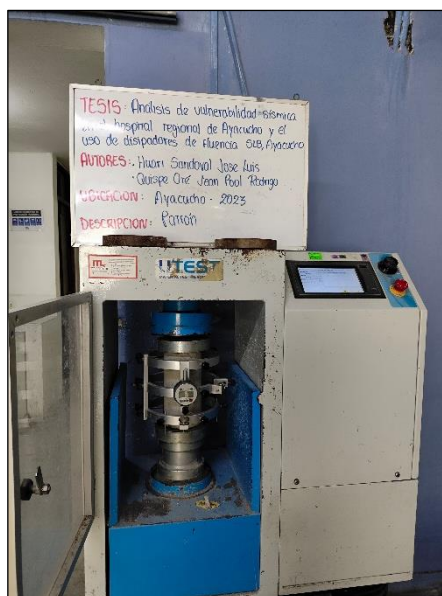 TESIS: Analisis de vulnerabilidad sismica
en el hospital regional de Ayacucho y el
uso de disipadores de fluencia SLB, Ayacucho
AUTORES: . Huari Sandoval Jose Luis
· Quispe Oré Jean Pool Rodrigo
UBICACION: Ayacucho - 2023
DESCRIPCION: Patron
UTEST